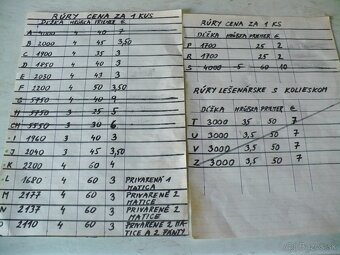 RÚRY CENA ZA 1 KUS
DĹŽKA HRÚBKA PRIEMER €
A 4000 4 40 7
B 2000 4 45 3,50
C 1900 4 35 3
D 1850 4 35 3
E 2030 4 43 3
F 2200 4 50 3,50
G 5750 4 40 9
H 5750 3 35
CH 5550 3 30 6
I 1960 3 40 3
J 2040 3 45 3,50
K 2200 4 60 4
L 1680 4 60 3 PRIVARENÁ 1 MATICA
M 2177 4 60 3 PRIVARENÉ 2 MATICE
N 2137 4 60 3 PRIVARENÉ 2 MATICE
O 2110 4 60 3 PRIVARENÉ 2 MATICE A 2 PÁNTY
RÚRY CENA ZA 1 KS
DĹŽKA HRÚBKA PRIEMER €
P 1700 25 2
R 1700 25 2
S 4000 5 60 10
RÚRY LEŠENÁRSKE S KOLIESKOM
DĹŽKA HRÚBKA PRIEMER €
T 3000 35 50 7
U 3000 3,5 50 7
V 3000 3,5 50 7
Z 3000 3,5 50 7